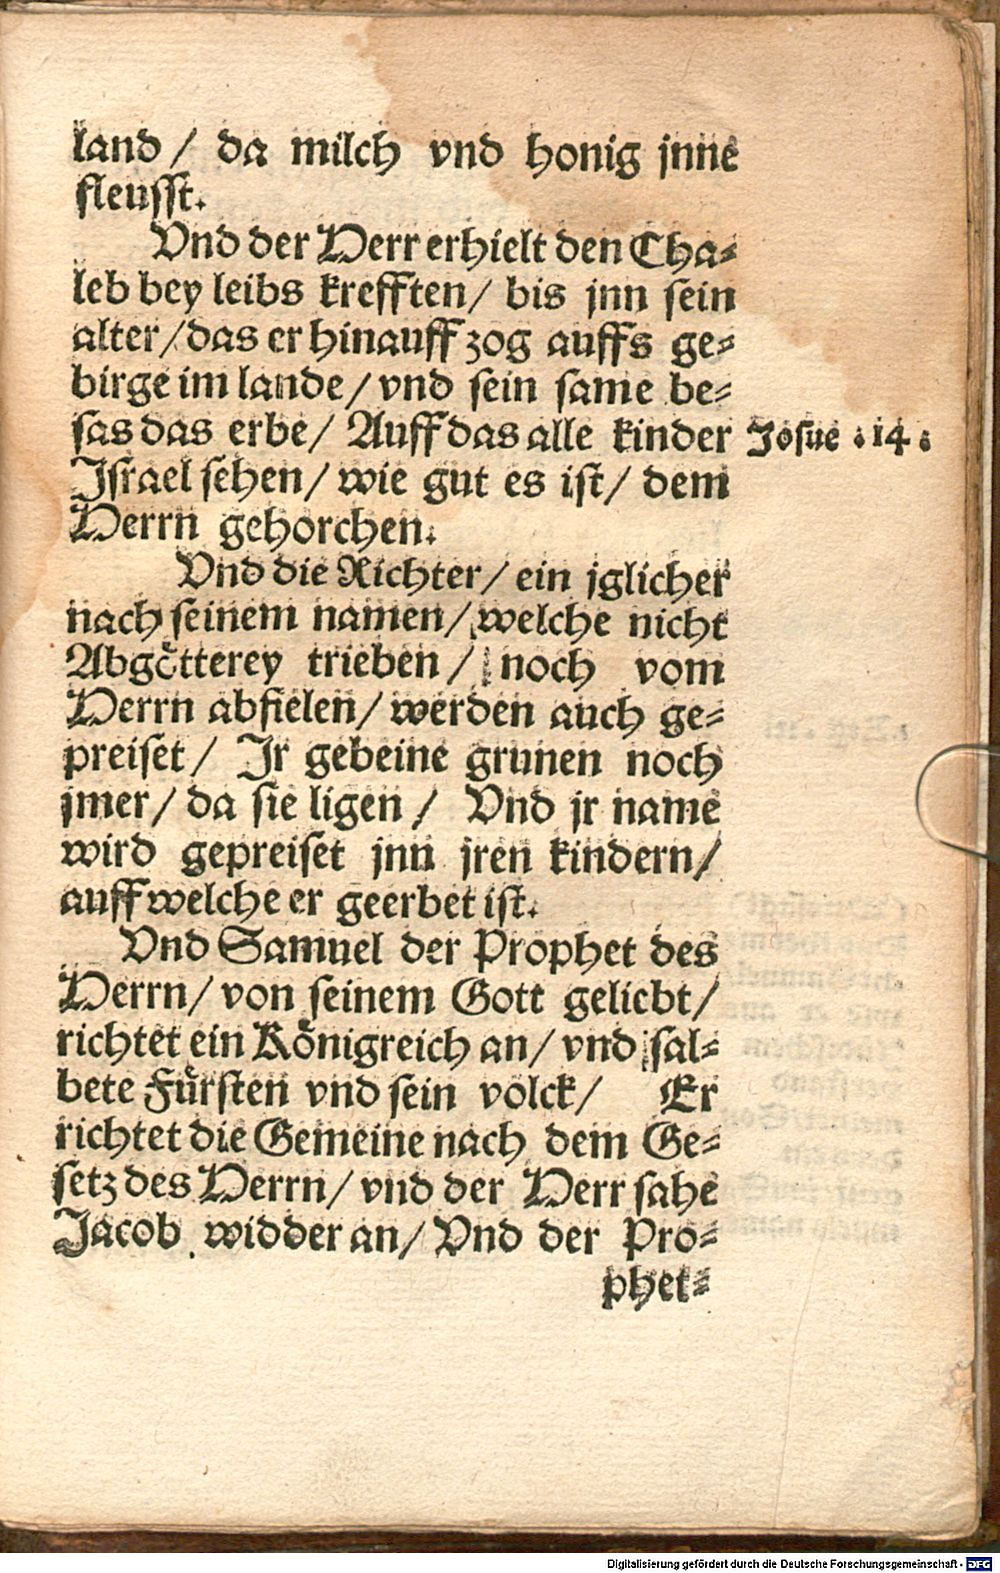 land / da milch vnd honig jnne
fleusst.
Vnd der Herr erhielt den Cha⸗
leb bey leibs krefften / bis jnn sein
alter / das er hinauff zog auffs ge⸗
birge im lande / vnd sein same be⸗
sas das erbe / Auff das alle kinder
Josue .14.
Israel sehen / wie gut es ist / dem
Herrn gehorchen.
Vnd die Richter / ein jglicher
nach seinem namen / welche nicht
Abgötterey trieben / noch vom
Herrn abfielen / werden auch ge⸗
preiset / Ir gebeine grunen noch
jmer / da sie ligen / Vnd jr name
wird gepreiset jnn jren kindern /
auff welche er geerbet ist.
Vnd Samuel der Prophet des
Herrn / von seinem Gott geliebt /
richtet ein Königreich an / vnd sal⸗
bete Fürsten vnd sein volck / Er
richtet die Gemeine nach dem Ge⸗
setz des Herrn / vnd der Herr sahe
Jacob widder an / Vnd der Pro⸗
phet⸗
Digitalisierung gefördert durch die Deutsche Forschungsgemeinschaft - DFG